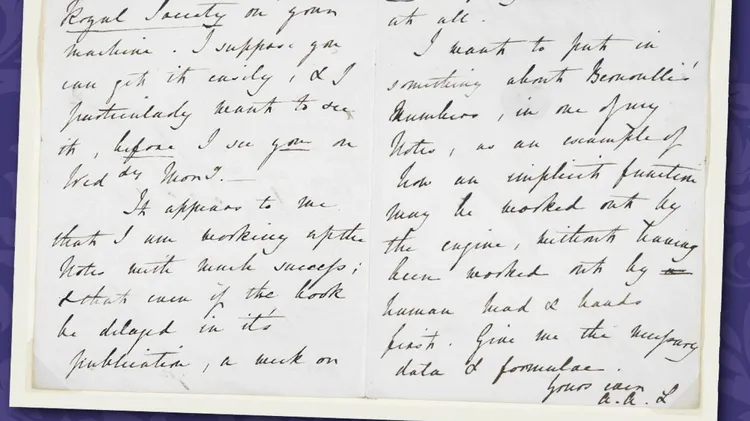 Royal Society on your
machine. I suppose you
can get it easily, & I
particularly want to see
it, before I see you on
Wed dy Morng.—
It appears to me
that I am working up the
Notes with much success;
& that even if the book
be delayed in it's
publication, a week or
at all.
I want to put in
something about Bernoulli's
Numbers, in one of my
Notes, as an example of
how an implicit function
may be worked out by
the engine, without having
been worked out by a
human head & hands
first. Give me the necessary
data & formulae.
Yours ever
A. A. L